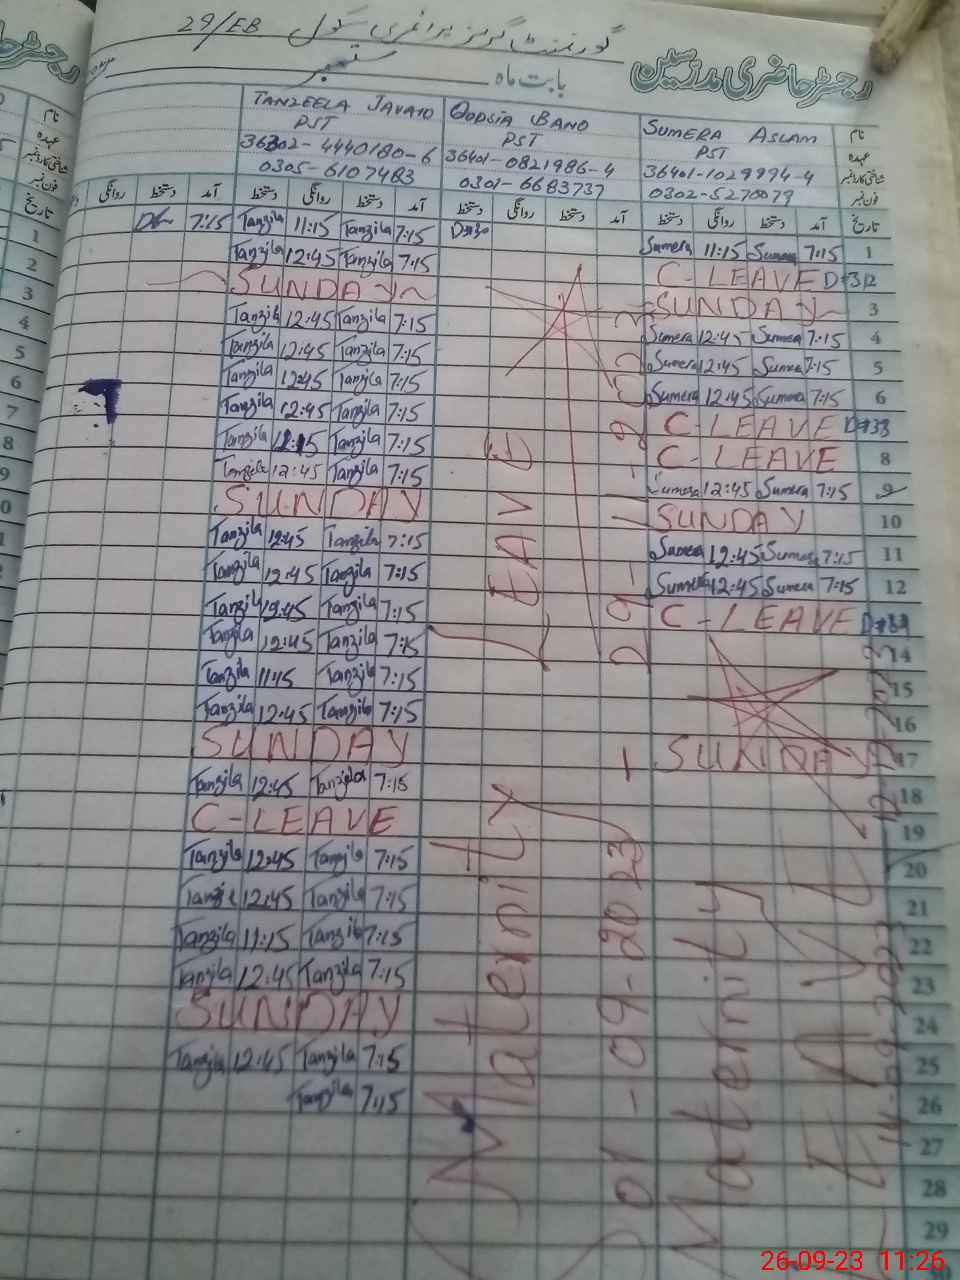 گورنمنٹ گرلز پرائمری سکول 29/EB
رجسٹر حاضری مدرسین
بابت ماہ ستمبر
نام SUMERA ASLAM QODSIA BANO TANZEELA JAVAID
عہدہ PST PST PST
شناختی کارڈ نمبر 36401-1029994-4 36401-0821986-4 36302-4440180-6
فون نمبر 0302-5270079 0301-6683737 0305-6107483
تاریخ آمد دستخط روانگی دستخط آمد دستخط روانگی دستخط آمد دستخط روانگی دستخط آمد دستخط روانگی
1 7:15 Sumera 11:15 Sumera 7:15 Tanzila 11:15 Tanzila 7:15
2 C-LEAVE 7:15 Tanzila 12:45 Tanzila
3 SUNDAY SUNDAY
4 7:15 Sumera 12:45 Sumera 7:15 Tanzila 12:45 Tanzila
5 7:15 Sumera 12:45 Sumera 7:15 Tanzila 12:45 Tanzila
6 7:15 Sumera 12:45 Sumera 7:15 Tanzila 12:45 Tanzila
7 C-LEAVE 7:15 Tanzila 12:45 Tanzila
8 C-LEAVE 7:15 Tanzila Tanzila
9 7:15 Sumera 12:45 Sumera 7:15 Tanzila 12:45 Tanzila
10 SUNDAY SUNDAY
11 7:15 Sumera 12:45 Sumera 7:15 Tanzila 12:45 Tanzila
12 7:15 Sumera 12:45 Sumera 7:15 Tanzila 12:45 Tanzila
C-LEAVE 7:15 Tanzila 12:45 Tanzila
14 7:15 Tanzila 12:45 Tanzila
15 7:15 Tanzila 11:15 Tanzila
16 7:15 Tanzila 12:45 Tanzila
17 SUNDAY SUNDAY
18 7:15 Tanzila 12:45 Tanzila
19 C-LEAVE
20 7:15 Tanzila 12:45 Tanzila
21 7:15 Tanzila 12:45 Tanzila
22 7:15 Tanzila 11:15 Tanzila
23 7:15 Tanzila 12:45 Tanzila
24 SUNDAY
25 7:15 Tanzila 12:45 Tanzila
26 7:15 Tanzila
27
28
29
Maternity LEAVE
01-09-2023 - 29-11-2023
Maternity LEAVE
14-09-2023
26-09-23 11:26